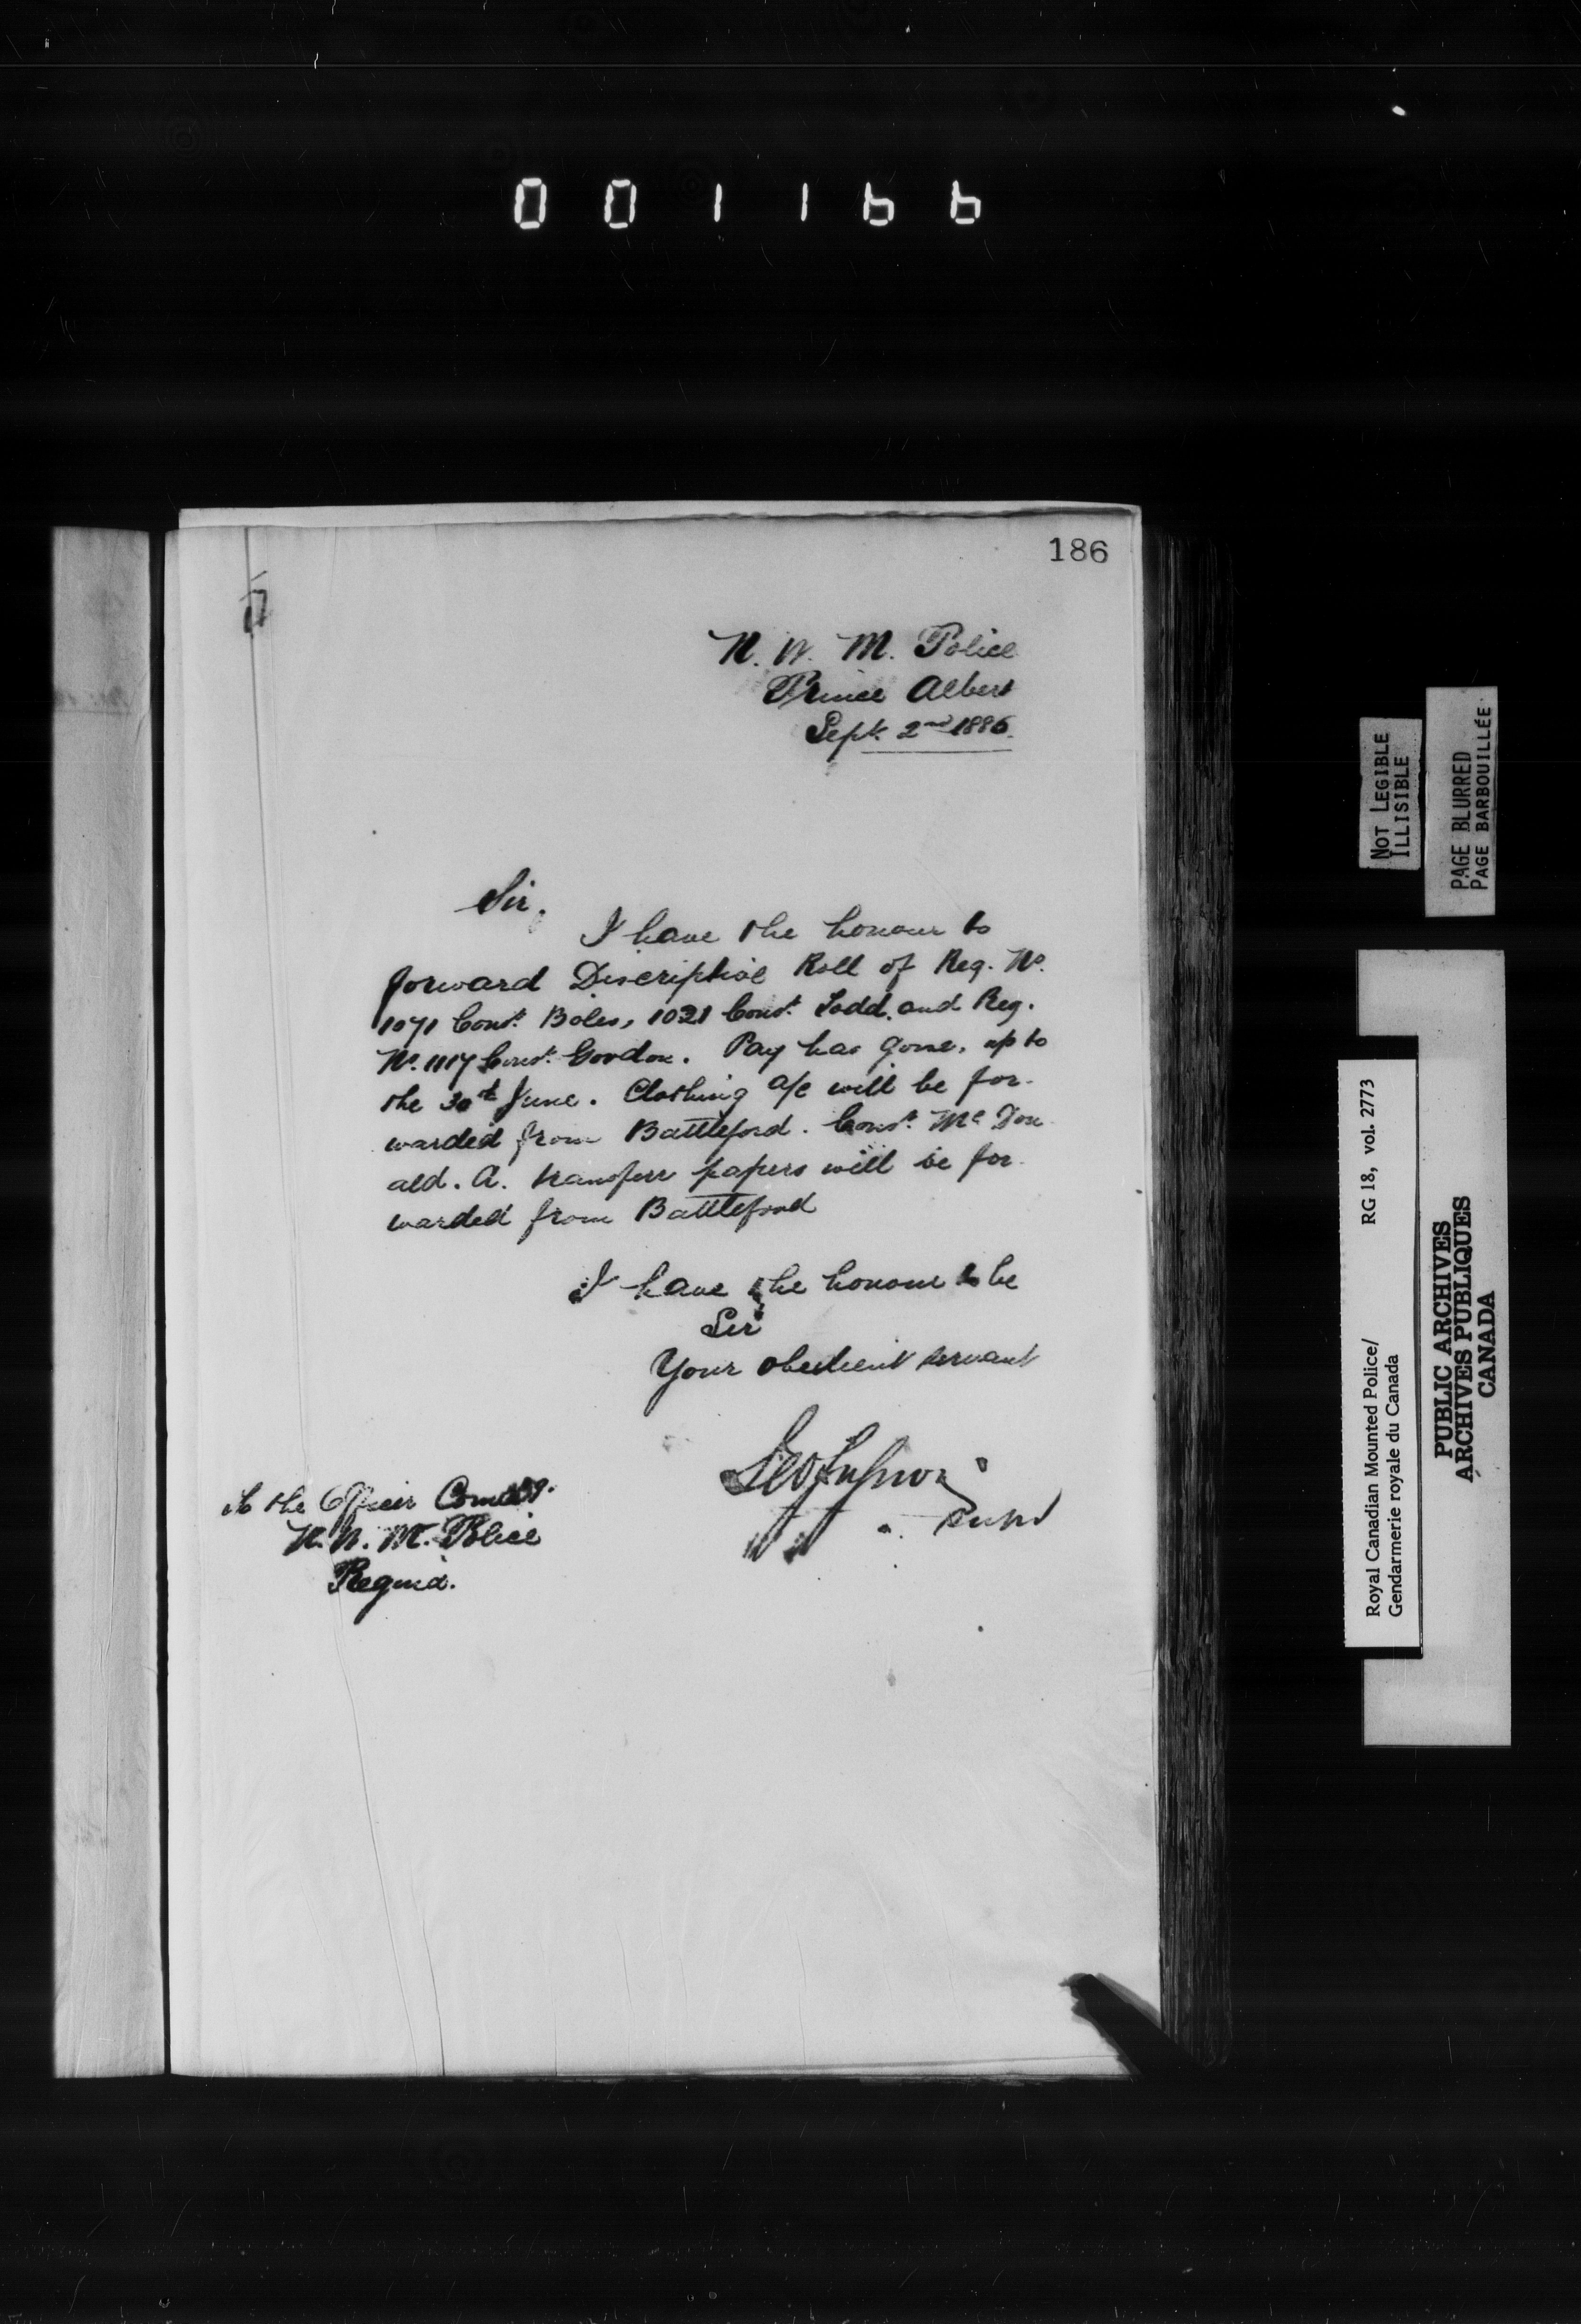 001166
186
N. W. M. Police
Prince Albert
Sept. 2nd 1886.
Sir.
I have the honour to
forward Discriptive Roll of Reg. No.
1071 Const. Boles, 1021 Const. Todd. and Reg.
No. 1117 Const. Gordon. Pay has gone. up to
the 30th June. Clothing a/c will be for-
warded from Battleford. Const. Mc Don-
ald. A. transfer papers will be for-
warded from Battleford
I have the honour to be
Sir
Your obedient servant
Supt
To the Officer Comdg.
N. W. M. Police
Regina.
NOT LEGIBLE
ILLISIBLE
PAGE BLURRED
PAGE BARBOUILLÉE
Royal Canadian Mounted Police/ RG 18, vol. 2773
Gendarmerie royale du Canada
PUBLIC ARCHIVES
ARCHIVES PUBLIQUES
CANADA